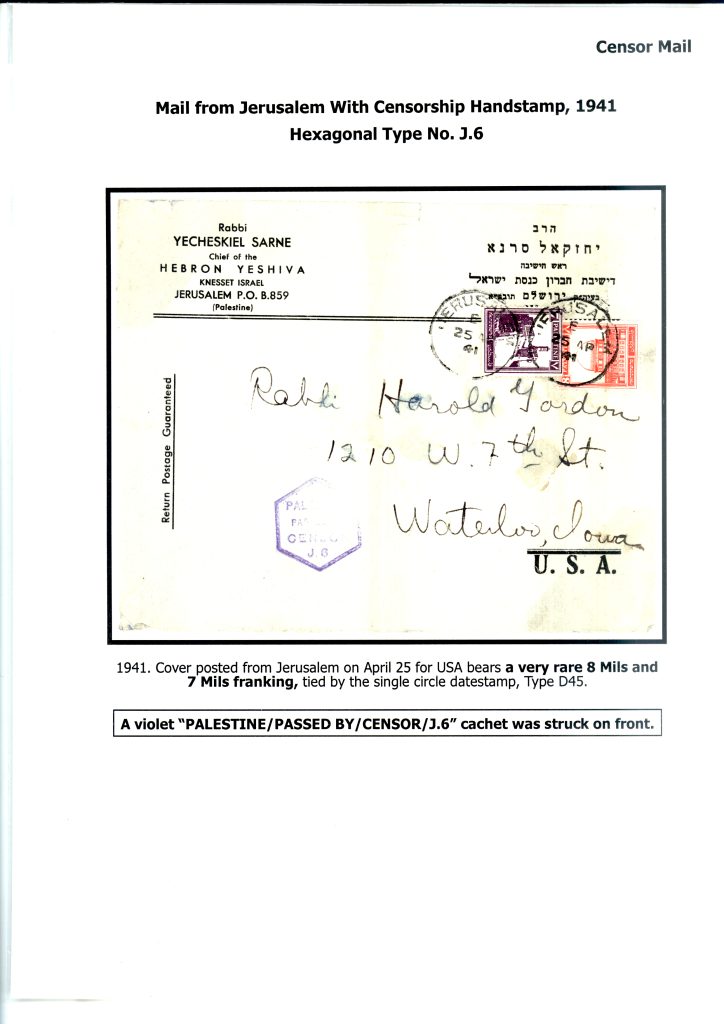 Censor Mail
Mail from Jerusalem With Censorship Handstamp, 1941
Hexagonal Type No. J.6
Rabbi
YECHESKIEL SARNE
Chief of the
HEBRON YESHIVA
KNESSET ISRAEL
JERUSALEM P.O. B.859
(Palestine)
הרב
יחזקאל סרנא
ראש הישיבה
דישיבת חברון כנסת ישראל
ירושלם
JERUSALEM
E
25 AP
41
JERUSALEM
E
25 AP
41
Return Postage Guaranteed
Rabbi Harold Gordon
1210 W. 7th St.
Waterloo, Iowa
U. S. A.
PAL
PAS
CENSO
J.6
1941. Cover posted from Jerusalem on April 25 for USA bears a very rare 8 Mils and
7 Mils franking, tied by the single circle datestamp, Type D45.
A violet “PALESTINE/PASSED BY/CENSOR/J.6” cachet was struck on front.